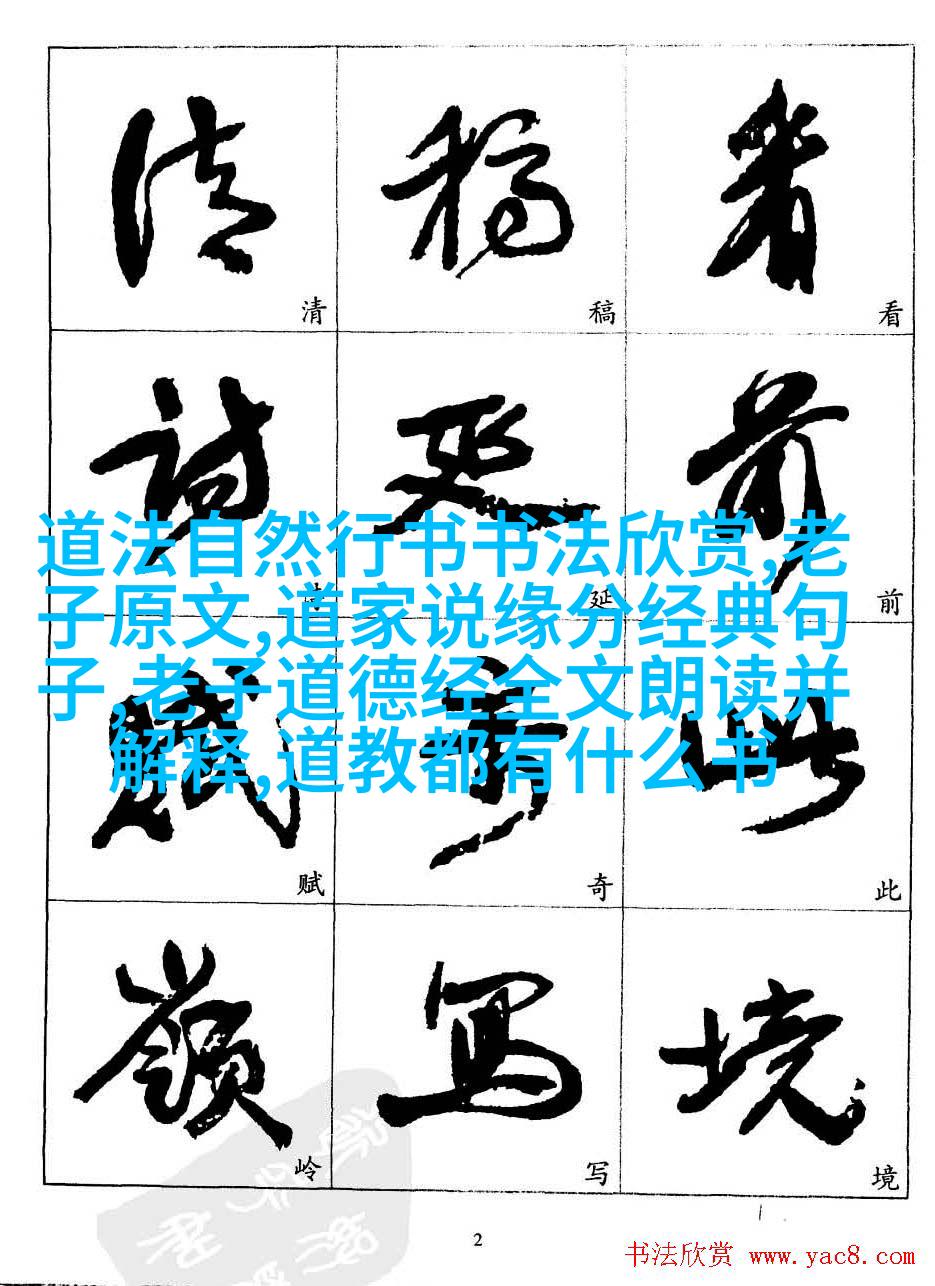 清 稿 看
清 稿 看
詩 延 前
道法自然行书书法欣赏,老
子原文,道家说缘分经典句
子,老子道德经全文朗读并
解释,道教都有什么书
延 前
賦 奇 此
赋 奇 此
嶺 寫 境
岭 写 境
2
书法欣赏 www.yac8.com